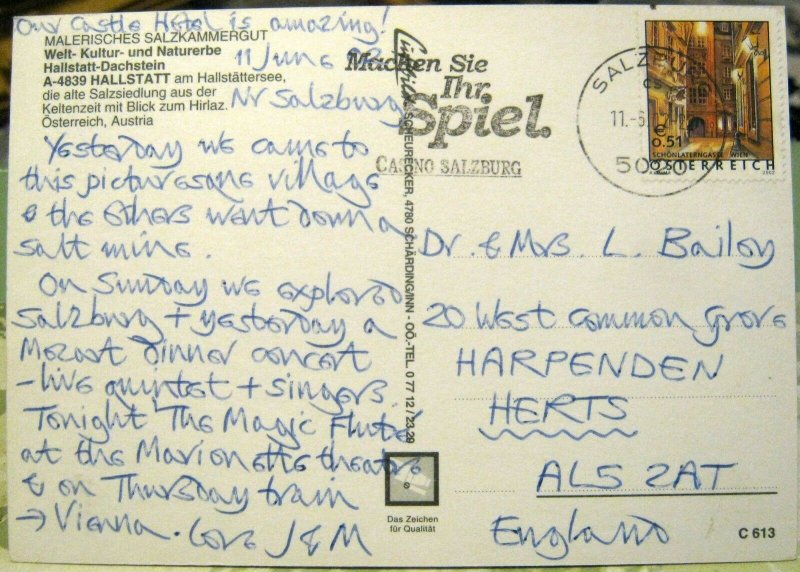 Our Castle Hotel is amazing!
MALERISCHES SALZKAMMERGUT
Welt- Kultur- und Naturerbe
Hallstatt-Dachstein
A-4839 HALLSTATT am Hallstättersee,
die alte Salzsiedlung aus der
Keltenzeit mit Blick zum Hirlaz.
Österreich, Austria
11 June
Nr Salzburg
Yesterday we came to
this picturesque village
& the others went down a
salt mine.
On Sunday we explored
Salzburg + yesterday a
Mozart dinner concert
- live quintet + singers.
Tonight The Magic Flute
at the Marionette theatre
& on Thursday train
→ Vienna. Love J & M
Machen Sie
Ihr
Spiel.
CASINO SALZBURG
SCHEURECKER, 4780 SCHÄRDING/INN - OÖ.-TEL. 0 77 12 / 23 29
Das Zeichen
für Qualität
SALZBURG
11.-6.
5020
€
0.51
SCHÖNLATERNGASSE WIEN
ÖSTERREICH
2002
Dr. & Mrs. L. Bailey
20 West Common Grove
HARPENDEN
HERTS
AL5 2AT
England
C 613